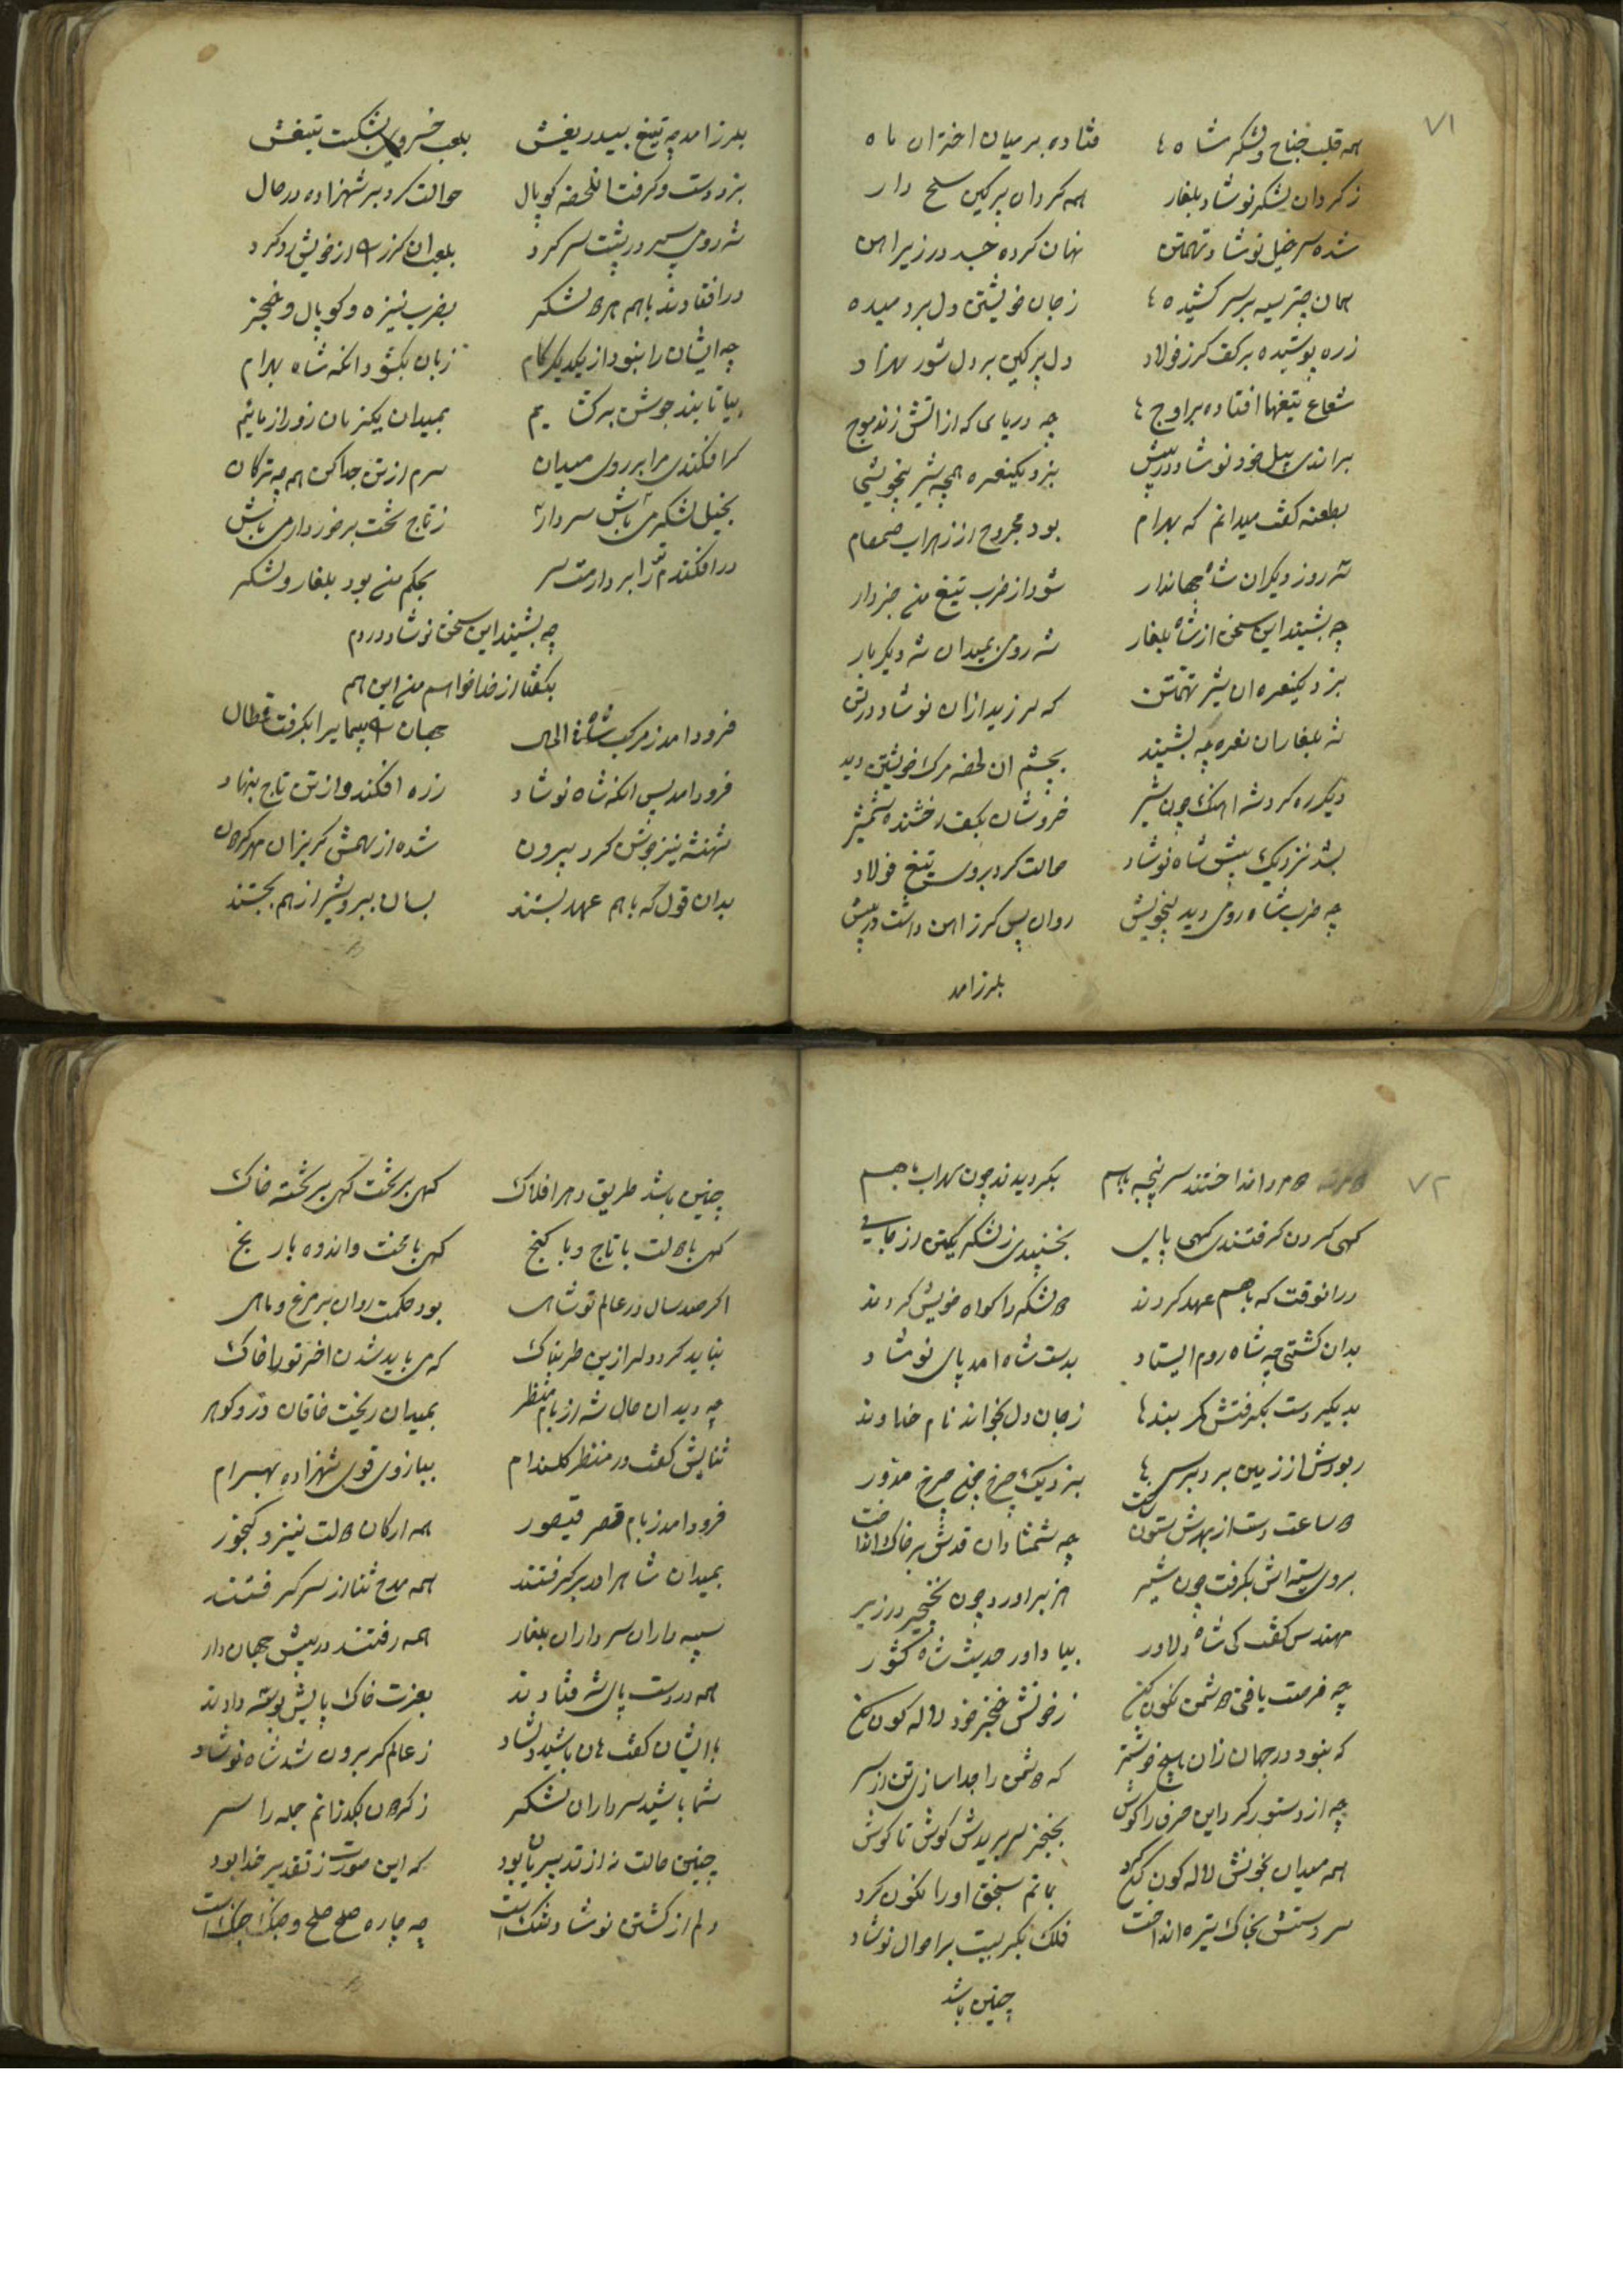 ۷۱
همه قلب جناح و لشکر شاه فتاده بر میان اختران ماه
ز کردان لشکر نوشاد بلغار همه کردان پرکین سلح دار
شده سر خیل نوشاد تهمتن نهان کرده جسد در زیر اهن
همان چتر سیه بر سر کشیده ز جان خویشتن دل برد میده
زره پوشیده بر کف کرز فولاد دل پر کین بر دل شور بهزاد
شعاع تیغها افتاده بر اوج چه دریای که از اتش زند موج
براندی پیل خود نوشاد در پیش بزد یکنعره همچه شیر بیخویش
بطعنه کفت میدانم که بهرام بود مجروح از زهراب صمصام
سه روز دیکران شاه جهاندار شود از ضرب تیغ من خبردار
چه بشنید این سخن از شاه بلغار شه رومی بمیدان شد دیکر بار
بزد یکنعره ان شیر تهمتن که لرزید ازان نوشاد در تن
شه بلغار ان نعره چه بشنید بچشم ان لحضه مرک خویشتن دید
دیکر ره کرد شه اهنک چون شیر خروشان بکف رخشنده شمشیر
بشد نزدیک پیش شاه نوشاد حالت کرد بروی تیغ فولاد
چه ضرب شاه رومی دید بیخویش روان پس کرز اهن داشت در پیش
بلرزامد
بلرزامد چه تیغ بیدریغش بلعب خسروی بشکست تیغش
بزد دست و کرفت انلحضه کوپال حوالت کرد بر شهزاده در حال
شه رومی سپر در پشت سر کرد بلعب ان کرز را از خویش رد کرد
در افتادند باهم هر دو لشکر بضرب نیزه و کوپال و خنجر
چه ایشان را نبود از یکدیکر کام زبان بکشود انکه شاه بهرام
بیا تا بند جوشن برکشاییم بمیدان یکزمان زور ازماییم
کر افکندی مرا بر روی میدان سرم از تن جدا کن همچه ترکان
بخیل لشکرم باش سردار ز تاج تخت برخوردار می باش
در افکندم ترا بردارمت سر بحکم من بود بلغار و لشکر
چه بشنید این سخن نوشاد در دم
بکفتا از خدا خواهم من این هم
فرود امد ز مرکب شاه در الحال جهان پیما را بکرفت قطال
فرود امد پس انکه شاه نوشاد زره افکند و از تن تاج بنهاد
شهنشه نیز جوشن کرد بیرون شده از سهمش کریزان مهر کردون
بدان قول که باهم عهد بستند بسان ببر و شیر از هم بجستند
۷۲
در انداختند سر پنجه باهم بکردیدند چون سهراب باهم
کهی کردن کرفتندی کهی پای بجنبیدی ز لشکر یکتن از جای
در انوقت که باهم عهد کردند دو لشکر را کواه خویش کردند
بدان کشتی چه شاه روم ایستاد بدست شاه امد پای نوشاد
بدیکر دست بکرفتش کمربندها ز جان دل بخواند نام خداوند
ربودش از زمین بر د بر سر بنزدیک چرخ چنبر چرخ مدور
دو ساعت دست از بهرش ستون ساخت چه شمشادان قدش بر خاک انداخت
بروی سینه اش بکرفت چون شیر هزبر اورد چون نخچیر در زیر
مهندس کفت کی شاه دلاور بیاد اور حدیث شاه کشور
چه فرصت یافتی دشمن نکون کن ز خونش خنجر خود لاله کون کن
که نبود در جهان زان هیچ خوشتر که دشمن را جدا سازی تن از سر
چه از دستور کرد این حرف را کوش بخنجر سر بریدش کوش تا کوش
همه میدان بخونش لاله کون کرد بماتم سنجق او را نکون کرد
سر دستش بخاک تیره انداخت فلک بکریست بر احوال نوشاد
چنین باشد
چنین باشد طریق دهر افلاک کهی بر تخت کهی بر تخته خاک
کهی با دولت با تاج و با کنج کهی با محنت و اندوه با رنج
اکر صد سال در عالم تو شاهی بود حکمت روان بر مرغ و ماهی
نباید کرد دل را زین طربناک که می باید شدن اخر تو را خاک
چه دید ان حال شه از بام منظر بمیدان ریخت خاقان در و کوهر
ثنایش کفت در منظر کلندام ببازوی قوی شهزاده بهرام
فرود امد ز بام قصر قیصور همه ارکان دولت نیز و کنجور
بمیدان شاه را در بر کرفتند همه مدح ثنا از سر کرفتند
سپه داران سرداران بلغار همه رفتند در پیش جهان دار
همه در دست پای شه فتادند بعزت خاک پایش بوسه دادند
با ایشان کفت هان باشید دلشاد ز عالم کر برون شد شاه نوشاد
شما باشید سرداران لشکر ز کردون بکذرانم جمله را سر
چنین حالت نه از تدبیر ما بود که این صورت ز تقدیر خدا بود
دلم از کشتن نوشاد تنکست چه چاره صلح صلح و جنک جنکست